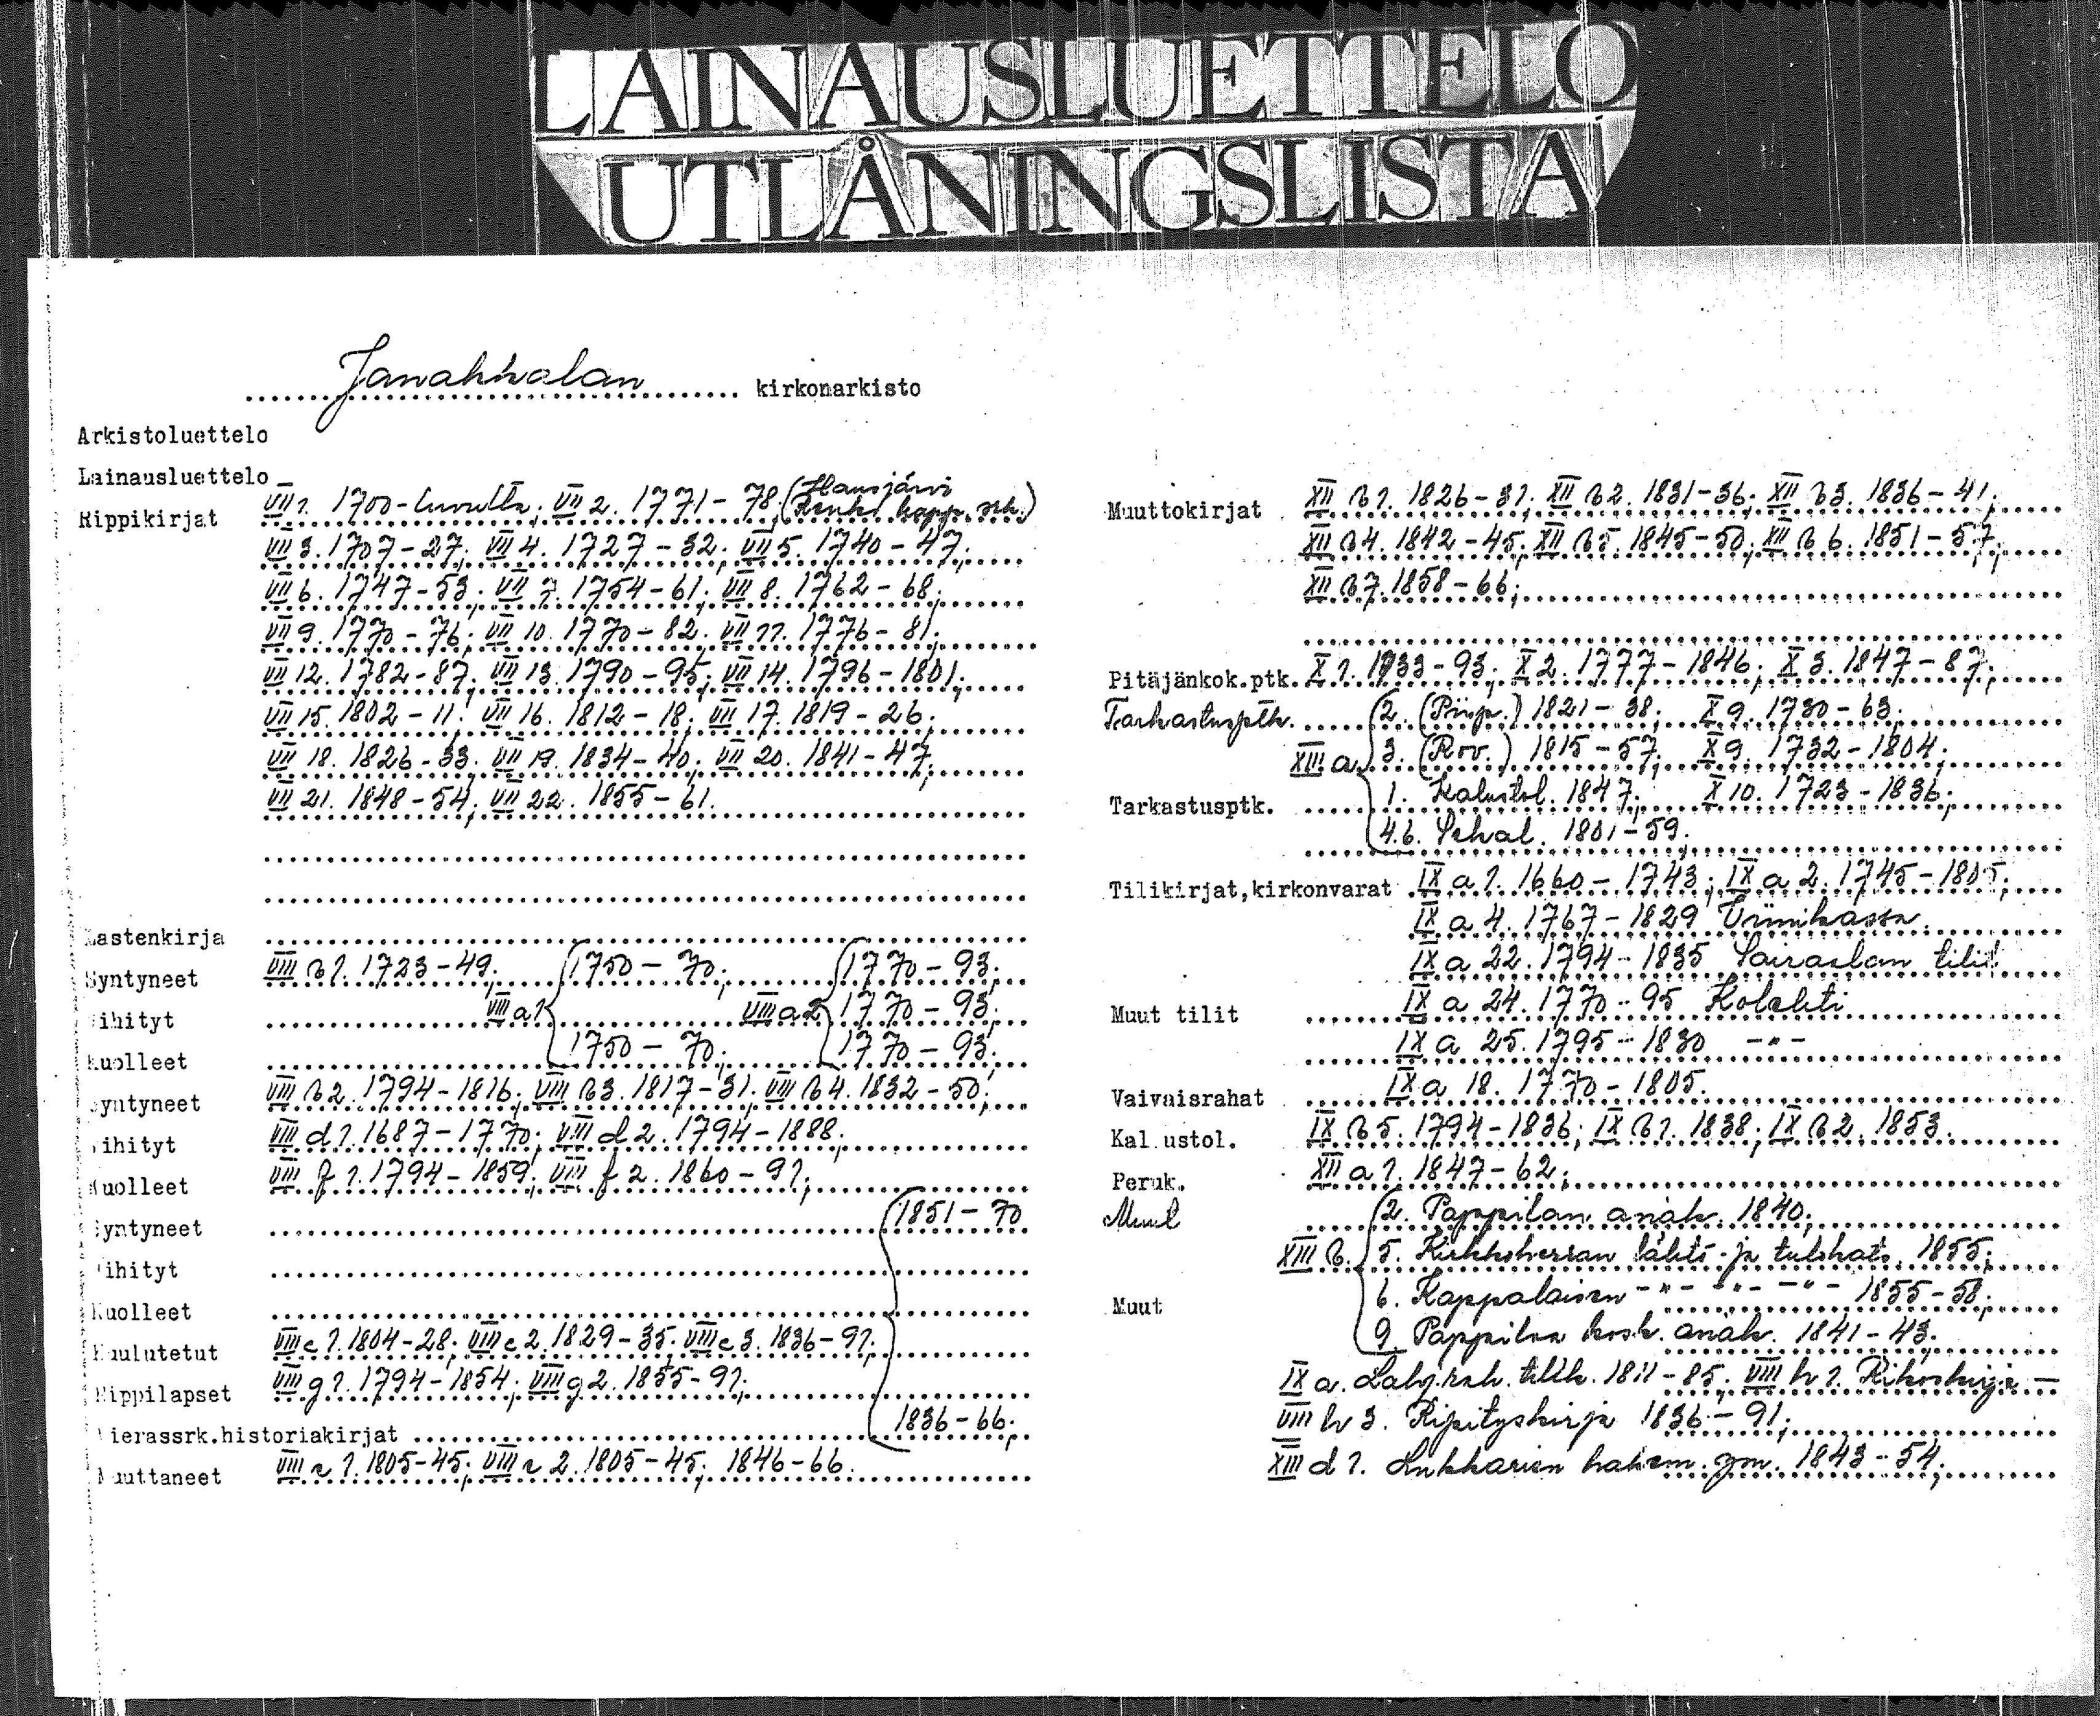 LAINAUSLUETTELO
UTLÅNINGSLISTA
Janakkalan kirkonarkisto
Arkistoluettelo
Lainausluettelo –
Rippikirjat VII 1. 1700-luvulta; VII 2. 1771–78, (Hausjärvi
kapp. srk.)
VII 3. 1707–27; VII 4. 1727–32; VII 5. 1740–47;
VII 6. 1747–53; VII 7. 1754–61; VII 8. 1762–68;
VII 9. 1770–76; VII 10. 1770–82; VII 11. 1776–81;
VII 12. 1782–87; VII 13. 1790–95; VII 14. 1796–1801;
VII 15. 1802–11; VII 16. 1812–18; VII 17. 1819–26;
VII 18. 1826–33; VII 19. 1834–40; VII 20. 1841–47;
VII 21. 1848–54; VII 22. 1855–61.
Lastenkirja
Syntyneet VIII b 1. 1723–49. 1750–70; 1770–93;
Vihityt VIII a 1 VIII a 2 1770–93;
Kuolleet 1750–70; 1770–93;
Syntyneet VIII b 2. 1794–1816; VIII b 3. 1817–31; VIII b 4. 1832–50;
Vihityt VIII d 1. 1687–1770; VIII d 2. 1794–1888;
Kuolleet VIII f 1. 1794–1859; VIII f 2. 1860–91;
Syntyneet 1851–70
Vihityt
Kuolleet
Kuulutetut VIII c 1. 1804–28; VIII c 2. 1829–35; VIII c 3. 1836–91;
Rippilapset VIII g 1. 1794–1854; VIII g 2. 1855–91;
Vierassrk.historiakirjat 1836–66;
Muuttaneet 1. 1805–45; 2. 1805–45; 1846–66.
Muuttokirjat XII b 1. 1826–31; XII b 2. 1831–36; XII b 3. 1836–41;
XII b 4. 1842–45; XII b 5. 1845–50; XII b 6. 1851–57;
XII b 7. 1858–66;
Pitäjänkok.ptk. X 1. 1733–93; X 2. 1777–1846; X 3. 1847–87;
Tarkastusptk. 2. (Piisp.) 1821–38; X 9. 1730–63;
XIII a. 3. (Rov.) 1815–57; X 9. 1732–1804;
Tarkastusptk. 1. Kalustol. 1847; X 10. 1723–1836;
4.6. Sekal. 1801–59;
Tilikirjat,kirkonvarat IX a 1. 1660–1743; IX a 2. 1745–1805;
IX a 4. 1767–1829
IX a 22. 1794–1835 Sairaalan tilit
Muut tilit IX a 24. 1770–95 Kolehti
IX a 25. 1795–1830 –"–
Vaivaisrahat IX a 18. 1770–1805.
Kal.ustol. IX b 5. 1794–1836; IX b 1. 1838; IX b 2. 1853.
Peruk. XII a 1. 1847–62;
Muut 2. Pappilan anäk. 1840;
XIII b. 5. Kirkkoherran lähts- ja tulokats. 1855;
Muut 6. Kappalaisen –"– –"– –"– 1855–58;
9. Pappilan kosk. anäk. 1841–43.
IX a. Lahj.rah. tilik. 1811–85; VIII h 1. Rikoskirja –
VIII h 3. Ripityskirja 1836–91;
XIII d 1. Lukkarien hakem. ym. 1843–54;